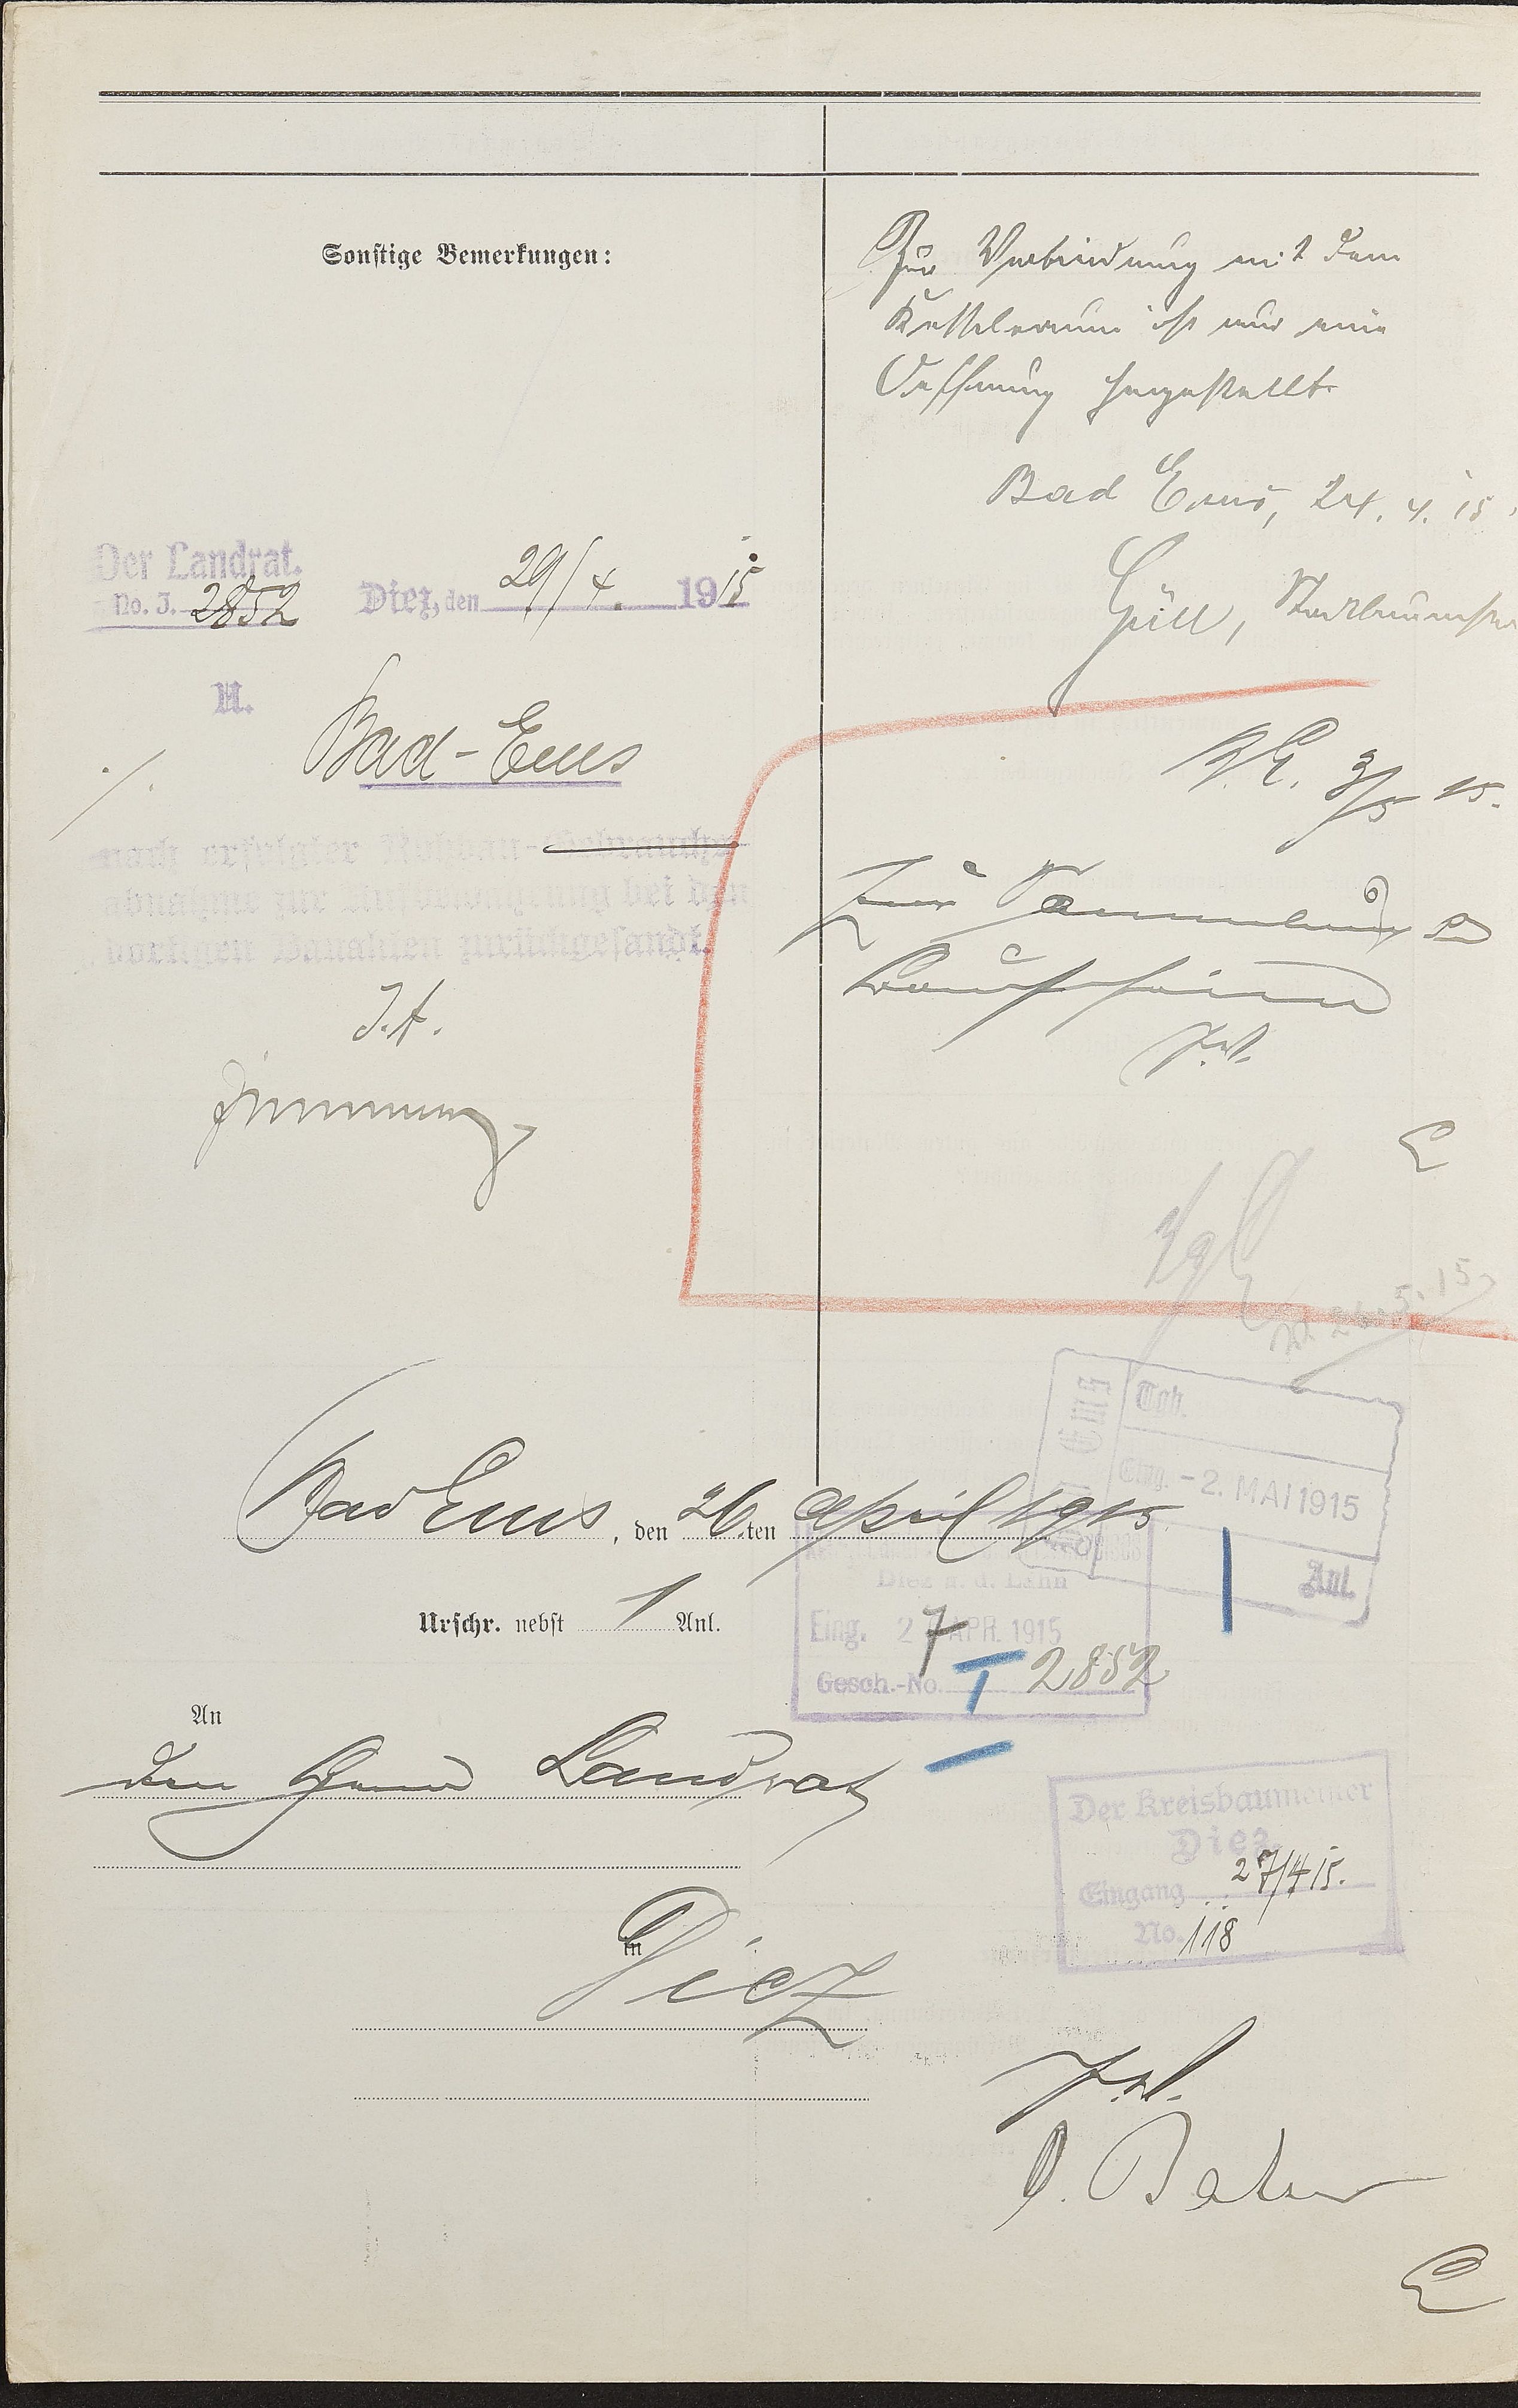 Sonstige Bemerkungen:
Zur Verbindung mit dem
Kesselraum ist nur eine
Oeffnung hergestellt.
Bad Ems, 24. 4. 15.
Güll, Stadtbaumstr
Der Landrat.
No. I. 2852 Diez, den 29/4. 1915
U.
Bad-Ems
nach erfolgter Rohbau-Gebrauchs-
abnahme zur Aufbewahrung bei den
dortigen Bauakten zurückgesandt.
J. A.
B. E. 3/5 15.
Zur Sammlung der
Bauscheine
J. V.
26.5.15
Bad Ems
Tgb.
Eing. - 2. MAI 1915
Anl.
Bad Ems, den 26.ten April 1915
Diez a. d. Lahn
Urschr. nebst 1 Anl.
Eing. 27 APR. 1915
Gesch.-No. I 2852
An
den Herrn Landrat
Der Kreisbaumeister
Diez.
Eingang 27/4 15.
No. 118
in
Diez
J. V.